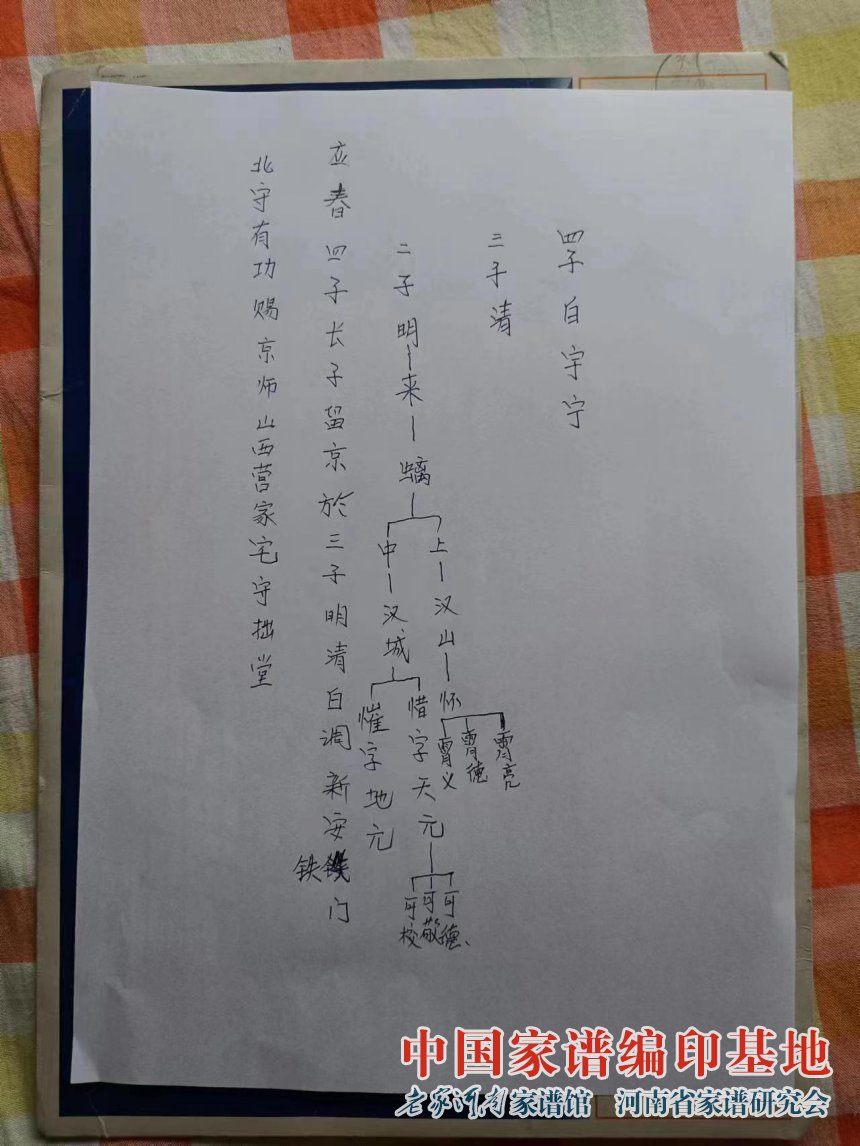 北守有功赐京师山西营家宅守拙堂
立春四子长子留京於三子明清白调新安铁门
二子明来螭
中汉城
憔字地元
惜字天元
可校
可敬
可德
上汉山怀
霄义
霄德
霄亮
三子清
四子白字宁
中国家谱编印基地
老家河南家谱馆 河南省家谱研究会